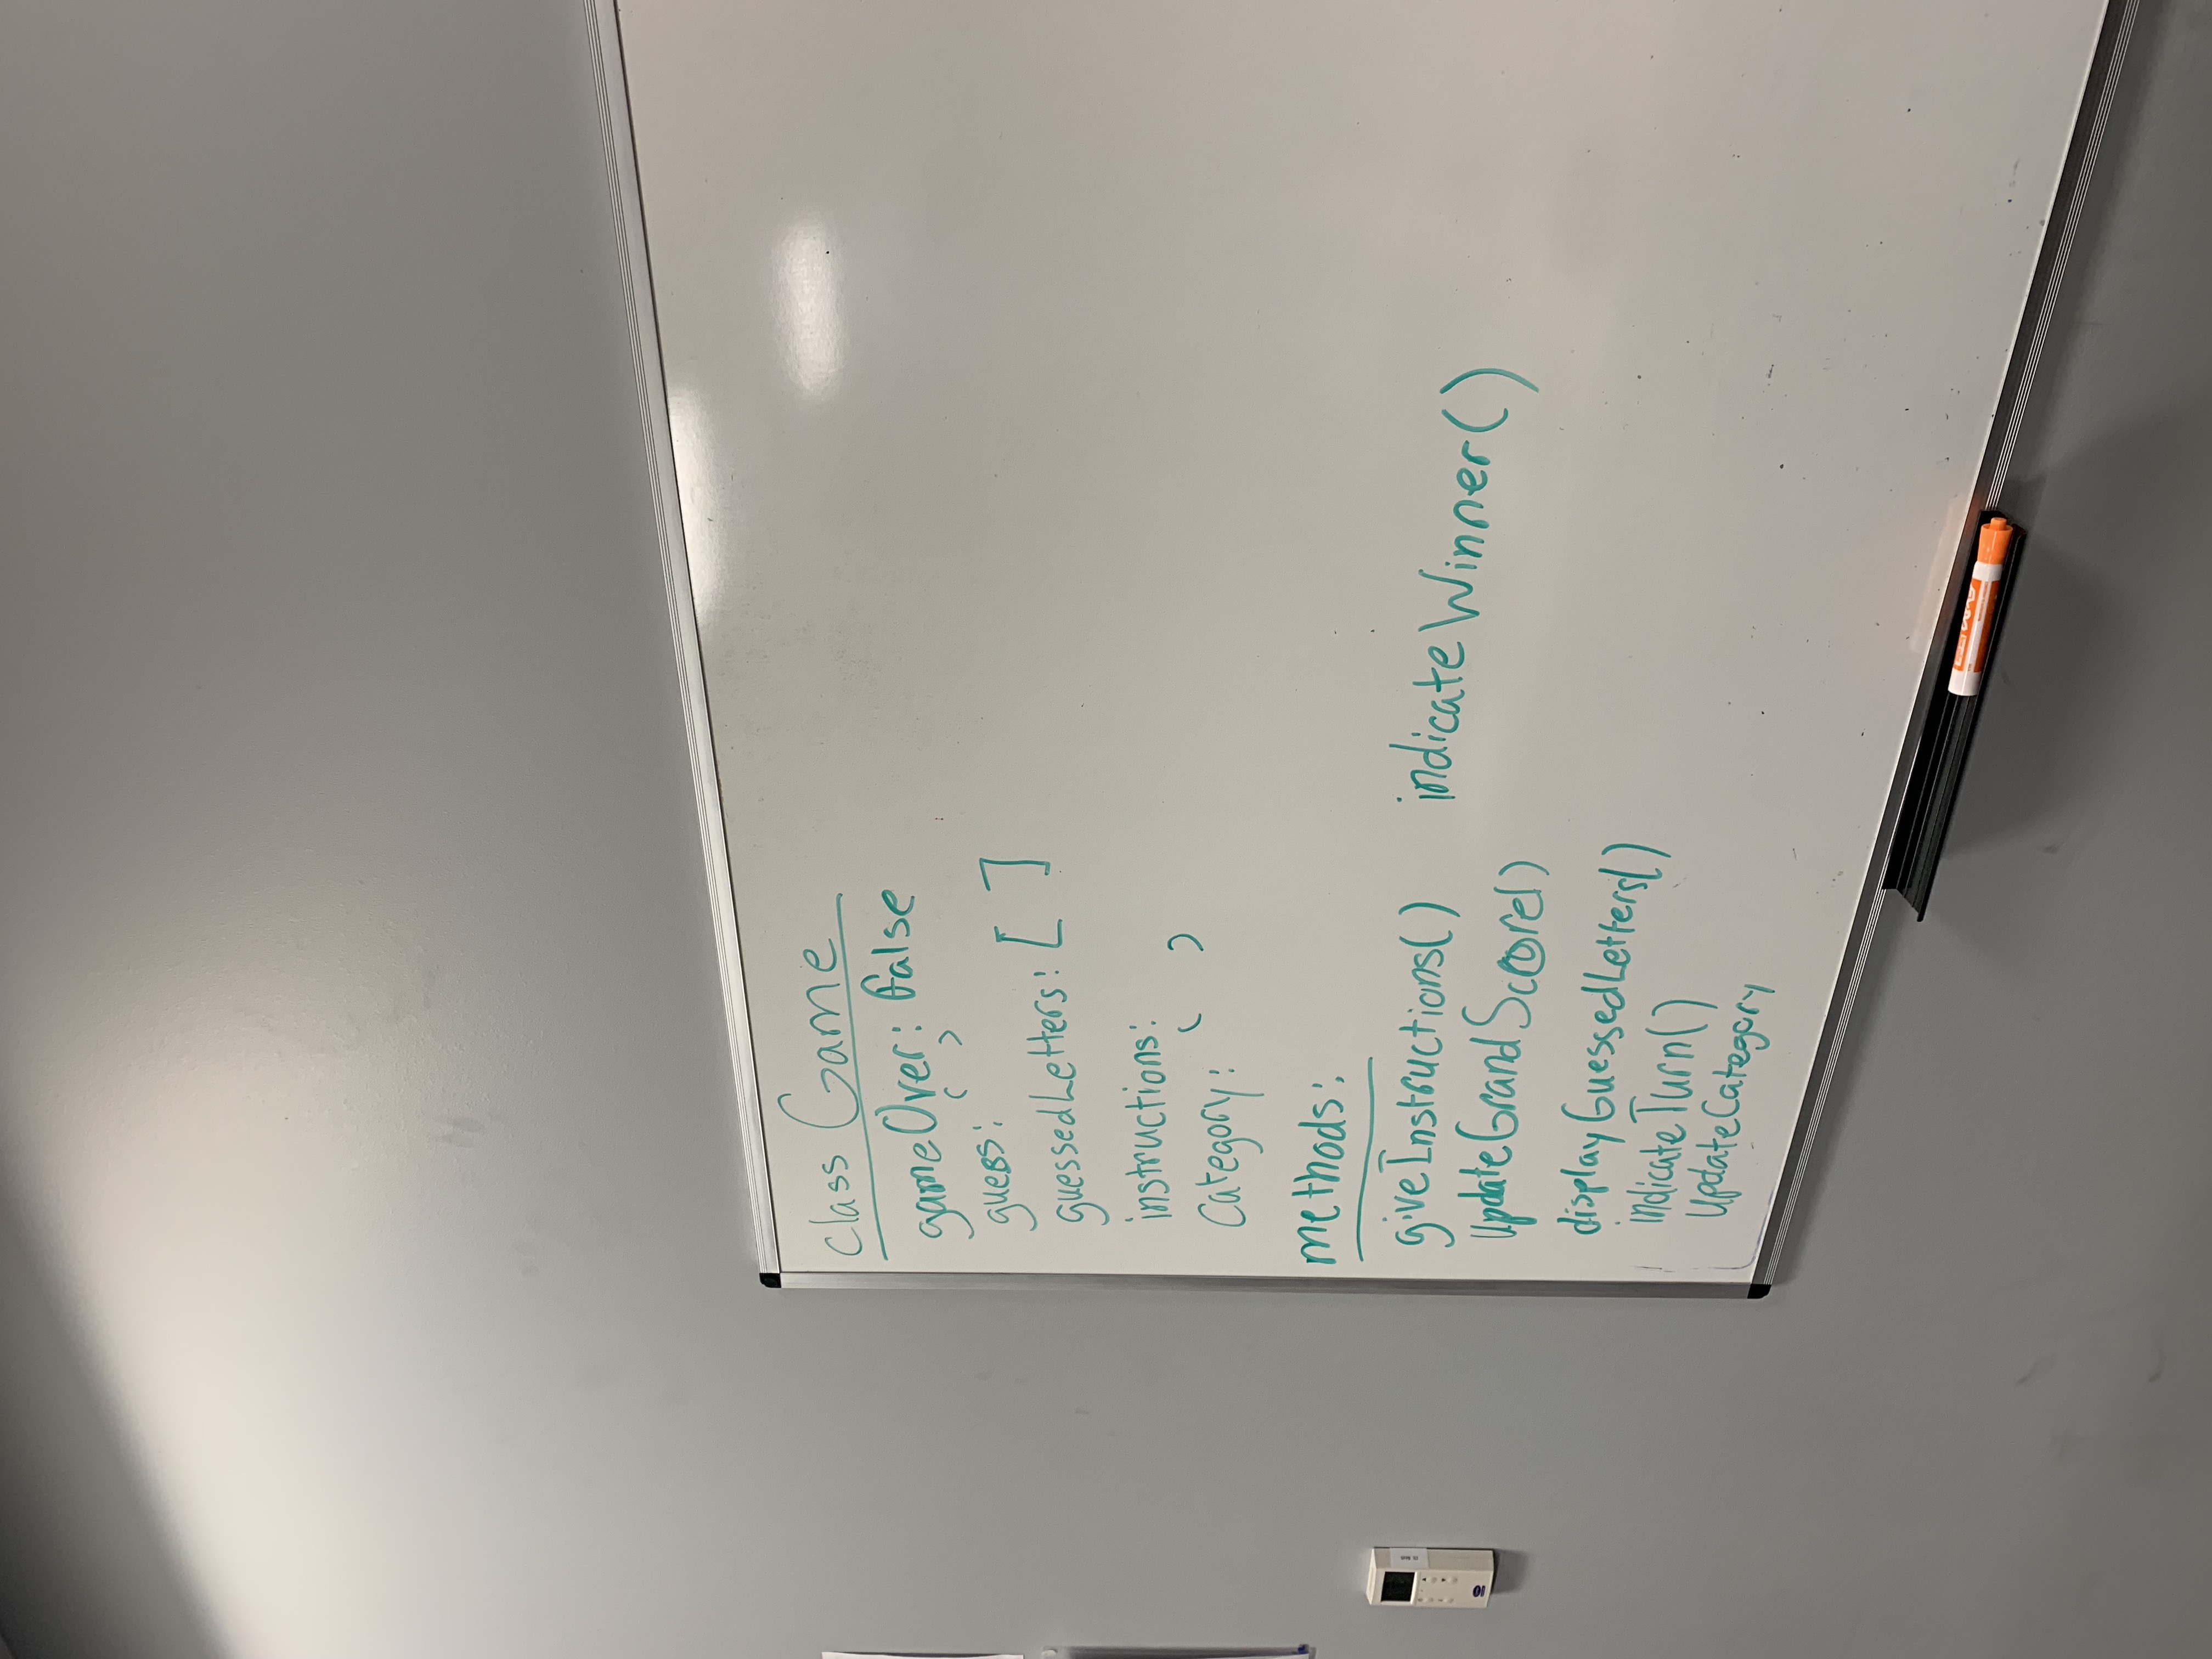 class Game
gameOver: false
guess: ' '
guessedLetters: [ ]
instructions:
Category: ' '
methods:
giveInstructions() indicateWinner()
updateGrandScore()
displayGuessedLetters()
indicateTurn()
updateCategory